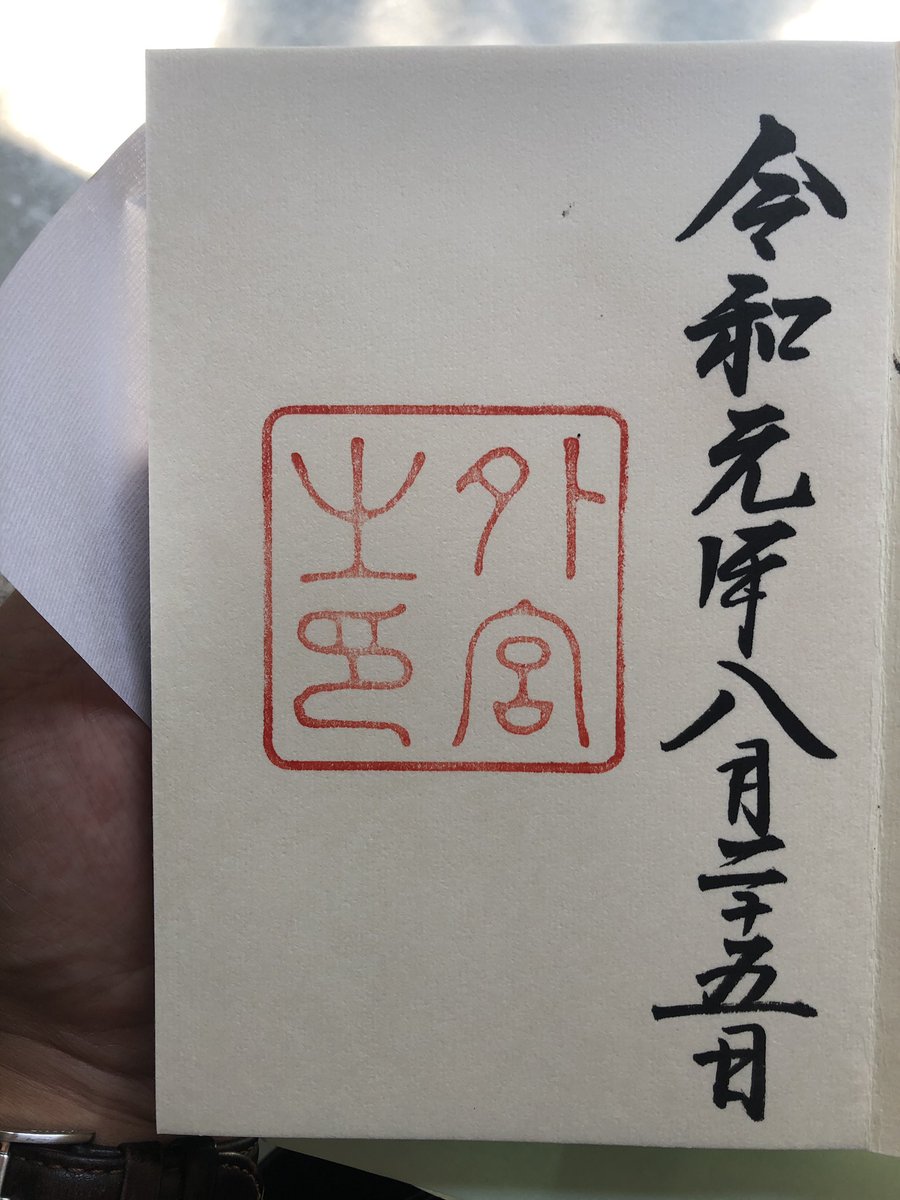 令和元年八月二十五日
外宮
之印